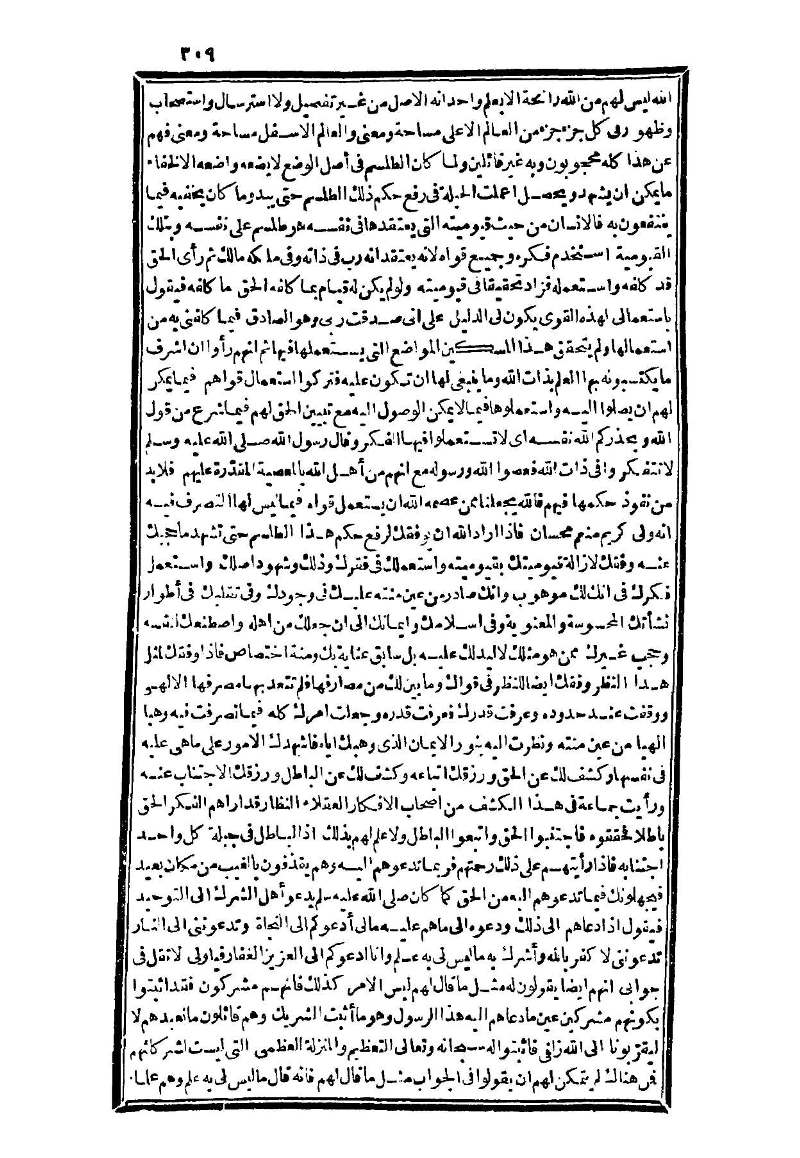 ٣٠٩
الله ليس لهم من الله رائحة الا بعلم واحد انه الاصل من غير تفصيل ولا استرسال واستصحاب
وظهور فى كل جزء جزء من العالم الاعلى مساحة ومعنى والعالم الاسفل مساحة ومعنى فهم
عن هذا كله محجوبون وبه غير قائلين ولما كان الطلسم فى أصل الوضع لا يضعه واضعه الا لاخفاء
ما يمكن ان يشهد ويحصل اعملت الحيلة فى رفع حكم ذلك الطلسم حتى يبدو ما كان يخفيه فيما
ينتفعون به فالانسان من حيث قيوميته التى يعتقدها فى نفسه هو طلسم على نفسه وبتلك
القيومية استخدم فكره وجميع قواه لانه يعتقد انه رب فى ذاته وفى ملكه مالك ثم رأى الحق
قد كلفه واستعمله فزاد تحقيقا فى قيوميته ولو لم يكن له قيام بما كلفه الحق ما كلفه فيقول
باستعمالى لهذه القوى يكون لى الدليل على انى صدقت ربى وهو الصادق فيما كلفنى به من
استعمالها ولم يتحقق هذا المسكين المواضع التى يستعملها فيها ثم انهم رأوا ان اشرف
ما يكتسبونه بها العلم بذات الله وما ينبغى لها ان تكون عليه فتركوا استعمال قواهم فيما يمكن
لهم ان يصلوا اليه واستعملوها فيما لا يمكن الوصول اليه مع تبيين الحق لهم فيما شرع من قول
الله ويحذركم الله نفسه اى لا تستعملوا فيها الفكر وقال رسول الله صلى الله عليه وسلم
لا تتفكروا فى ذات الله فعصوا الله ورسوله مع انهم من أهل الله بالمعصية المقدرة عليهم فلابد
من نفوذ حكمها فيهم فالله يجعلنا ممن عصمه الله ان يستعمل قواه فيما ليس لها التصرف فيه
انه ولى كريم منعم محسان فاذا اراد الله ان يوفقك لرفع حكم هذا الطلسم حتى تشهد ما حجبك
عنه وفقك لازالة قيوميتك بقيوميته واستعملك فى فقرك وذلك وشهود اصلك واستعمل
فكرك فى انك لك موهوب وانك صادر من عين منته عليك فى وجودك وفى تقليبك فى أطوار
نشأتك المحسوسة والمعنوية وفى اسلامك وايمانك الى ان جعلك من اهله واصطنعك لنفسه
وحجب غيرك ممن هو مثلك لا ليد لك عليه بل سابق عناية بك ومنة اختصاص فاذا وفقك لمثل
هذا النظر وفقك ايضا للنظر فى قواك وما بين لك من مصارفها فلم تتعد بها مصرفها الالهى
ووقفت عند حدوده وعرفت قدرك فعرفت قدره وجعلت امرك كله فيما تصرفت فيه وهبا
الهيا من عين منته ونظرت اليه بنور الايمان الذى وهبك اياه فاشهدك الامور على ماهى عليه
فى نفسها وكشف لك عن الحق ورزقك اتباعه وكشف لك عن الباطل ورزقك الاجتناب عنه
ورأيت جماعة فى هذا الكشف من اصحاب الافكار العقلاء النظار قد اراهم الفكر الحق
باطلا فحققوه فاجتنبوا الحق واتبعوا الباطل ولا علم لهم بذلك اذ الباطل فى جبلة كل واحد
اجتنابه فاذا رأيتهم على ذلك رحمتهم فربما تدعوهم اليه وهم يقذفون بالغيب من مكان بعيد
فيجهلونك فيما تدعوهم اليه من الحق كما كان صلى الله عليه وسلم يدعو أهل الشرك الى التوحيد
فيقول اذا دعاهم الى ذلك ودعوه الى ماهم عليه مالى أدعوكم الى النجاة وتدعوننى الى النار
تدعوننى لا كفر بالله وأشرك به ما ليس لى به علم وانا ادعوكم الى العزيز الغفار فيا ولى لا تقل فى
جوابى انهم ايضا يقولون له مثل ما قال لهم ليس الامر كذلك فانهم مشركون فقد اثبتوا
بكونهم مشركين عين ما دعاهم اليه هذا الرسول وهو ما أثبت الشريك وهم قائلون ما نعبدهم الا
ليقربونا الى الله زلفى فاثبتوا له سبحانه وتعالى التعظيم والمنزلة العظمى التى ليست لشركائهم
فمن هنالك لم يتمكن لهم ان يقولوا فى الجواب مثل ما قال لهم فانه قال ما ليس لى به علم وهم علما